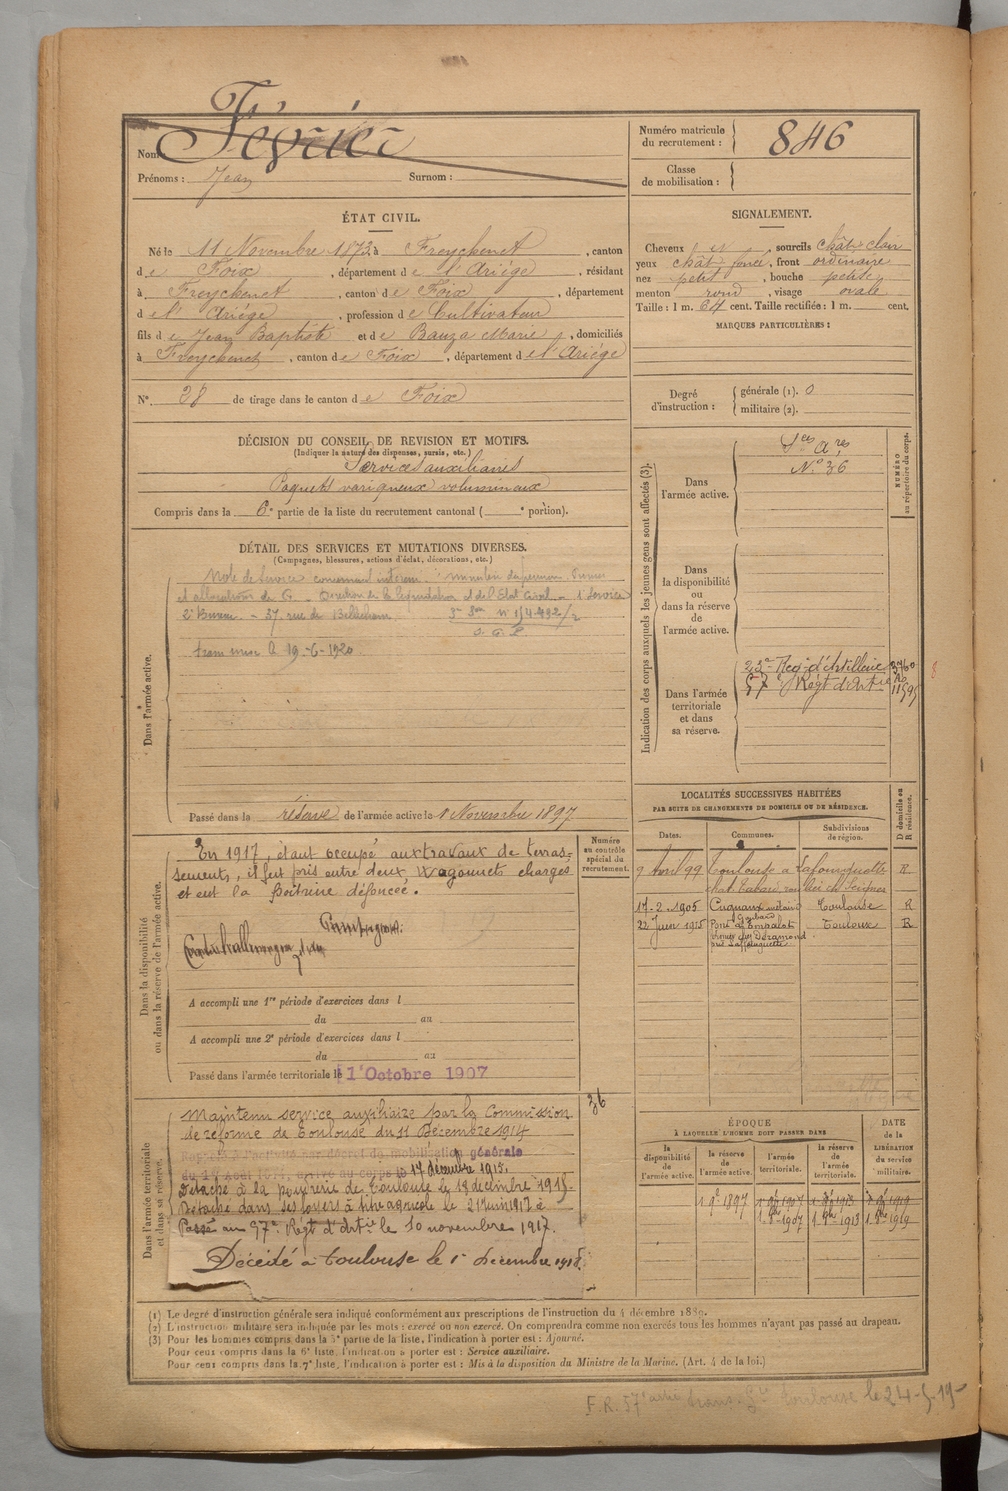 Nom : Février
Prénoms : Jean Surnom :
Numéro matricule du recrutement : 846
Classe de mobilisation :
ÉTAT CIVIL.
Né le 11 Novembre 1873 à Freychenet, canton
de Foix, département de l'Ariège, résidant
à Freychenet, canton de Foix, département
de l'Ariège, profession de Cultivateur
fils de Jean Baptiste et de Bauza Marie, domiciliés
à Freychenet, canton de Foix, département de l'Ariège
N° 28 de tirage dans le canton de Foix
SIGNALEMENT.
Cheveux et, sourcils chât clair
yeux chât foncé, front ordinaire
nez petit, bouche petite
menton rond, visage ovale
Taille : 1 m. 64 cent. Taille rectifiée : 1 m. cent.
MARQUES PARTICULIÈRES :
Degré d'instruction : générale (1). 0
militaire (2).
DÉCISION DU CONSEIL DE REVISION ET MOTIFS.
(Indiquer la nature des dispenses, sursis, etc.)
Services auxiliaires
Paquets variqueux volumineux
Compris dans la 6e partie de la liste du recrutement cantonal ( e portion).
DÉTAIL DES SERVICES ET MUTATIONS DIVERSES.
(Campagnes, blessures, actions d'éclat, décorations, etc.)
Dans l'armée active.
Note de Service concernant
et allocations de G. Direction de la liquidation et de l'Etat Civil - 1er Service
2e Bureau - 37, rue de Bellechasse
transmise le 19-6-1920
Passé dans la réserve de l'armée active le 1 Novembre 1897
Indication des corps auxquels les jeunes gens sont affectés (3).
NUMÉRO au répertoire du corps.
Dans l'armée active.
Sces Ares
N° 36
Dans la disponibilité ou dans la réserve de l'armée active.
Dans l'armée territoriale et dans sa réserve.
23e Reg. d'Artillerie
57e Régt d'Artie
LOCALITÉS SUCCESSIVES HABITÉES
PAR SUITE DE CHANGEMENTS DE DOMICILE OU DE RÉSIDENCE.
Dates. Communes. Subdivisions de région. D domicile ou R résidence.
9 Avril 99 Toulouse R
17-2-1905 Cugnaux Toulouse R
22 Juin 1915 Pont d'Empalot Toulouse R
Dans la disponibilité ou dans la réserve de l'armée active.
Numéro au contrôle spécial du recrutement.
En 1917, étant occupé aux travaux de terras-
sements, il fut pris entre deux Wagonnets chargés
et eut la Poitrine défoncée.
Campagnes.
Contre l'Allemagne
A accompli une 1re période d'exercices dans l
du au
A accompli une 2e période d'exercices dans l
du au
Passé dans l'armée territoriale le 1 Octobre 1907
Dans l'armée territoriale et dans sa réserve.
36
Maintenu service auxiliaire par la Commission
de réforme de Toulouse du 11 Décembre 1914
Rappelé à l'activité par décret de mobilisation générale
du 1er Août 1914, arrivé au corps le 17 décembre 1915.
Détaché à la poudrerie de Toulouse le 18 décembre 1915.
Détaché dans ses foyers à titre agricole le
Passé au 57e Régt d'Artie le 10 novembre 1917.
Décédé à Toulouse le 1er décembre 1918.
ÉPOQUE
À LAQUELLE L'HOMME DOIT PASSER DANS
DATE de la LIBÉRATION du service militaire.
la disponibilité de l'armée active. la réserve de l'armée active. l'armée territoriale. la réserve de l'armée territoriale.
1 9e 1897 1 9e 1907 1 9e 1913 1 9e 1919
1 8e 1907 1 9bre 1913 1 9bre 1919
(1) Le degré d'instruction générale sera indiqué conformément aux prescriptions de l'instruction du 4 décembre 1889.
(2) L'instruction militaire sera indiquée par les mots : exercé ou non exercé. On comprendra comme non exercés tous les hommes n'ayant pas passé au drapeau.
(3) Pour les hommes compris dans la 5e partie de la liste, l'indication à porter est : Ajourné.
Pour ceux compris dans la 6e liste, l'indication à porter est : Service auxiliaire.
Pour ceux compris dans la 7e liste, l'indication à porter est : Mis à la disposition du Ministre de la Marine. (Art. 4 de la loi.)
F.R. 57e Toulouse le 24-5-19